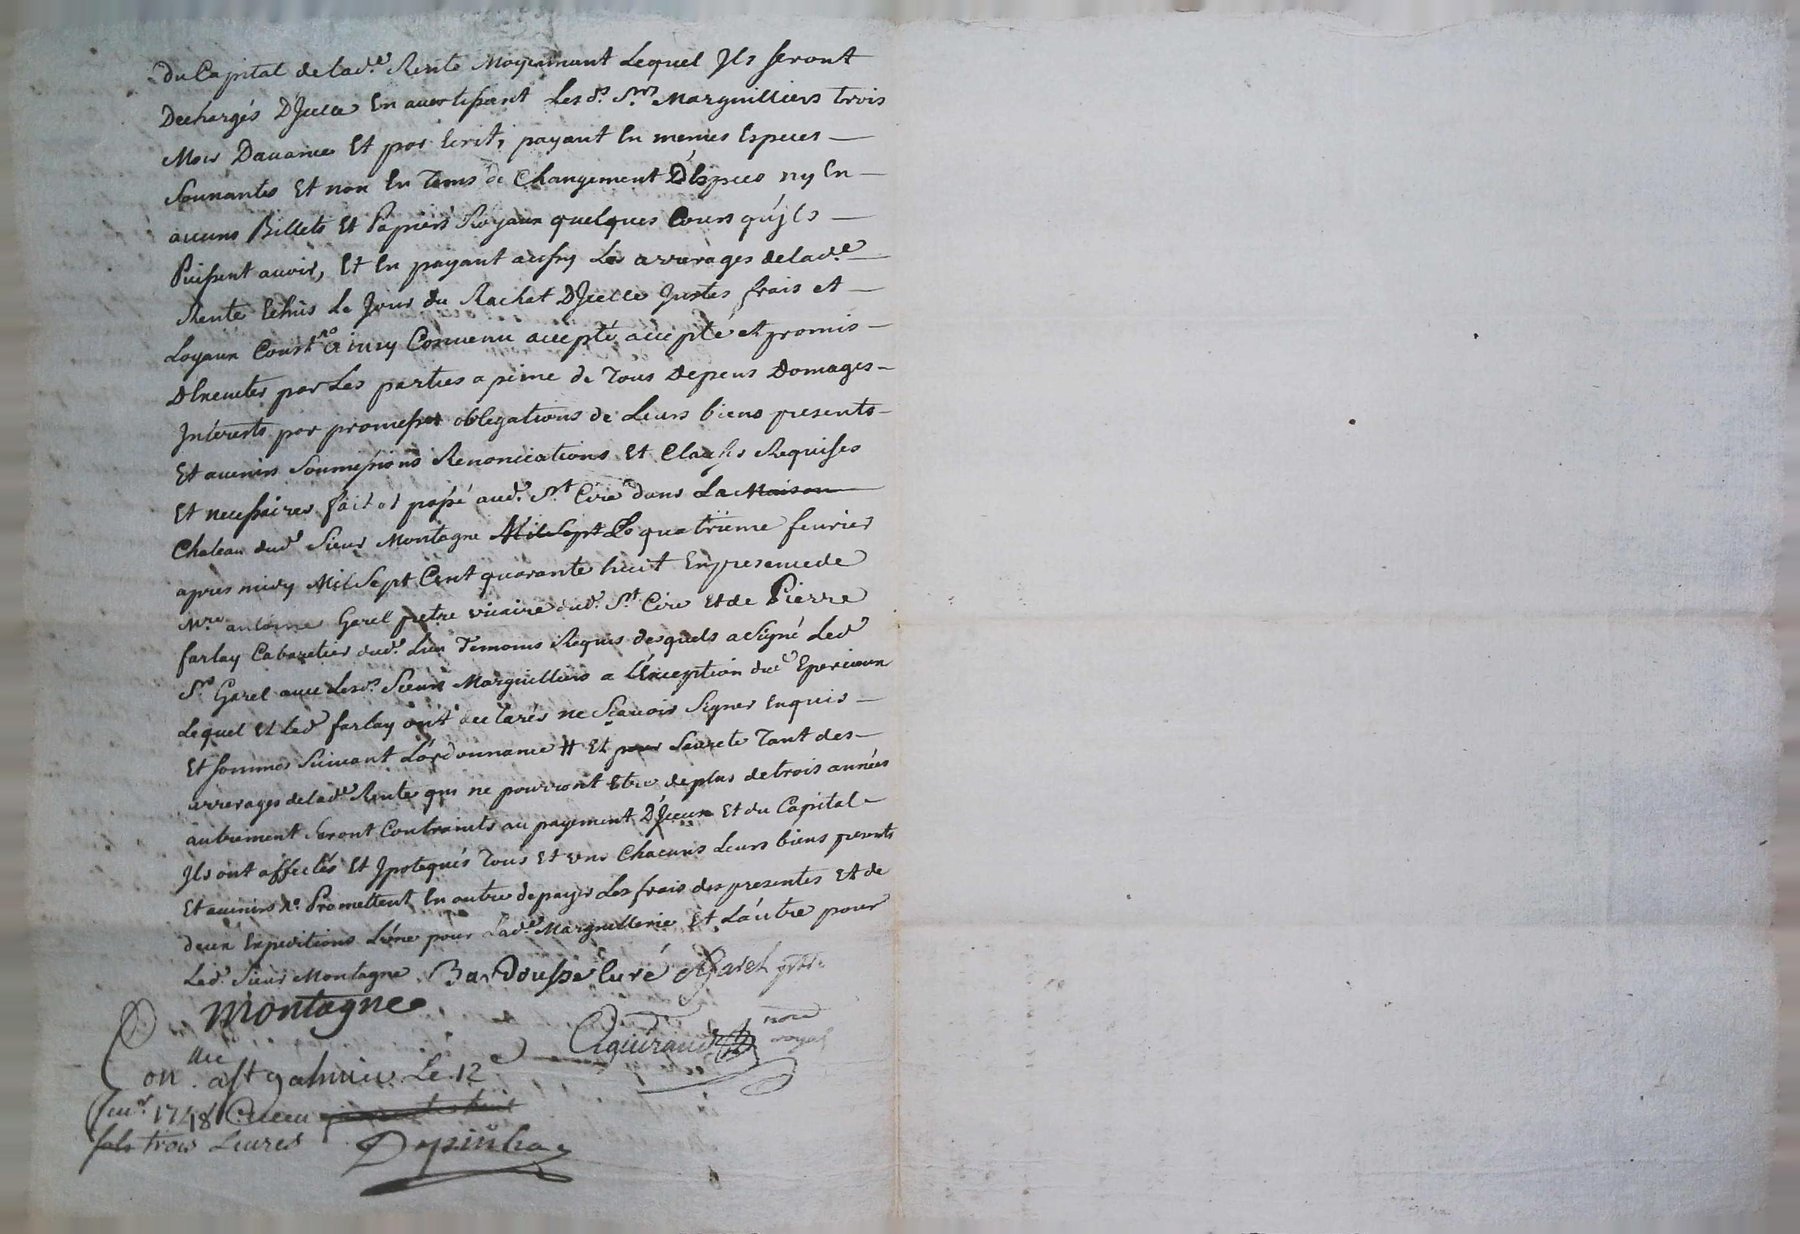 Du Capital de lad.e Rente Moyennant Lequel Jls seront
Dechargés D'Jcelle En avertissant Lesd.s S.rs Marguilliers trois
Mois Davance Et par Ecrit, payant En memes Especes —
Sonnantes Et non En Tems de Changement D'Especes ny En —
aucuns Billets Et Papiers Royaux quelques Cours qu'jls —
Puissent avoir, Et En payant aussy Les arrerages de lad.e —
Rente Echus Le Jour du Rachat D'Jcelle Justes frais et —
Loyaux Coust ainsy Convenu accepté et promis —
D'Executer par Les parties a peine de Tous Depens Domages —
Interests par promesses obligations de Leurs biens presents —
Et avenirs Soumissions Renonciations Et Clauses Requises
Et necessaires fait et passé aud.t S.t Cire dans La Maison
Chateau dud.t Sieur Montagne Mil Sept Le quatrieme fevrier
apres midy Mil Sept Cent quarante huit En presence de
M.re antoine Garel pretre vicaire dud.t S.t Cire Et de Pierre
farlay Cabaretier dud.t Lieu Temoins Requis desquels a Signé Led.t
S.r Garel avec Lesd.s Sieurs Marguilliers a L'Exception dud.t
Lequel Et Led.t farlay ont declarés ne Scavoir Signer Enquis —
Et sommés Suivant L'ordonnance # Et pour Seureté Tant des —
arrerages de lad.e Rente qui ne pourront Etre de plus de trois années
autrement Seront Contraints au payement D'Jceux Et du Capital —
Jls ont affectés Et Jpotequés Tous Et uns Chacuns Leurs biens presents
Et avenirs Promettent En outre de payer Les frais des presentes Et de
deux Expeditions L'une pour Lad.e Marguillerie Et L'autre pour
Led.t Sieur Montagne Bardousse Curé Garel
Montagne
not.e
royal
Con.lle a St galmier Le 12
feu.r 1748 Receu
sols trois Livres Depinhac